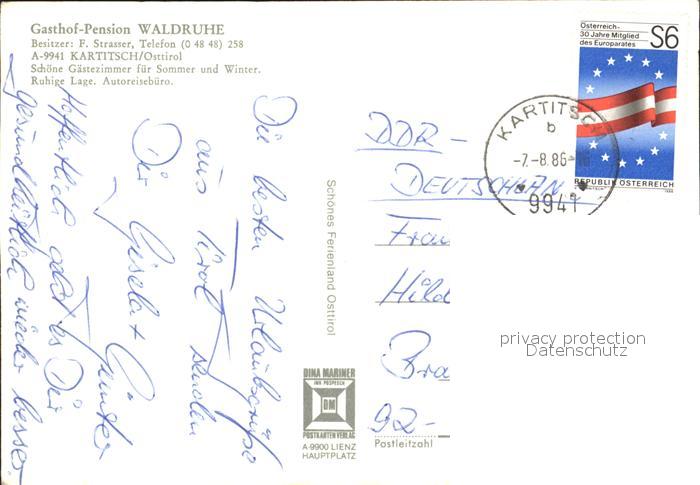 Gasthof-Pension WALDRUHE
Besitzer: F. Strasser, Telefon (0 48 48) 258
A-9941 KARTITSCH/Osttirol
Schöne Gästezimmer für Sommer und Winter.
Ruhige Lage. Autoreisebüro.
Die besten Urlaubsgrüße
aus Tirol senden
Dir Gisela + Günter
Hoffentlich geht es Dir
gesundheitlich wieder besser
Schönes Ferienland Osttirol
DINA MARINER
INH POSPESCH
DM
POSTKARTEN VERLAG
A-9900 LIENZ
HAUPTPLATZ
Österreich-
30 Jahre Mitglied
des Europarates
S6
REPUBLIK ÖSTERREICH
KARTITSCH
b
-7.-8.86
9941
DDR -
DEUTSCHLAN
Frau
Hild
Bra
92-
Postleitzahl
privacy protection
Datenschutz